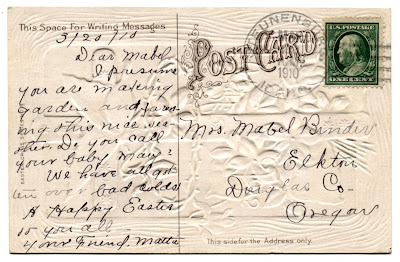 This Space For Writing Messages
3/20/10
Dear Mabel
I presume
you are making
garden and farm-
ing this nice wea-
ther. Do you call
your baby May?
We have all got
ten over bad colds
A Happy Easter
to you all,
Your Friend. Matta
POST CARD
1910
U.S. POSTAGE
ONE CENT
Mrs. Mabel Binder
Elkton
Douglas Co—
Oregon
This side for the Address only.